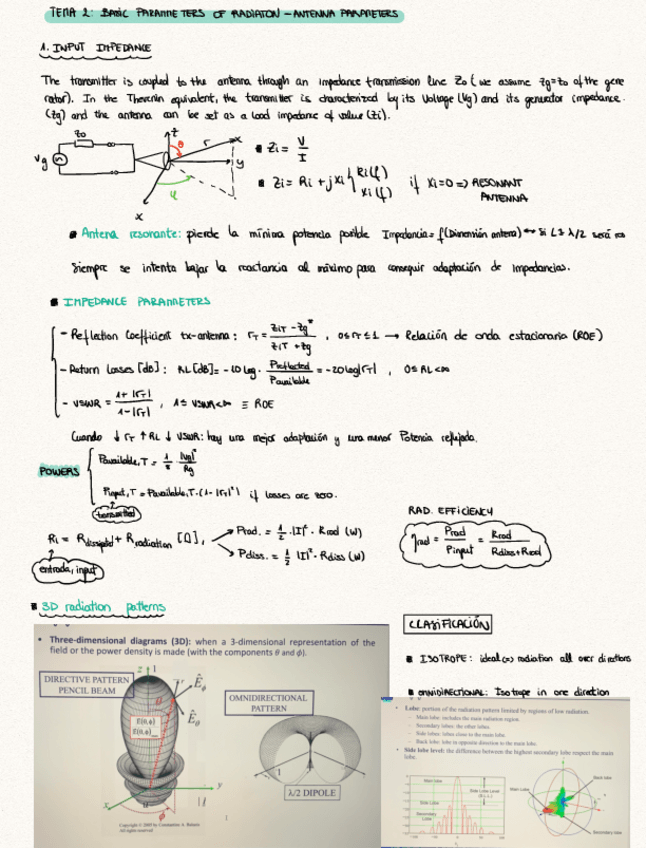 TEMA 2: BASIC PARAMETERS OF RADIATION - ANTENNA PARAMETERS
1. INPUT IMPEDANCE
The transmitter is coupled to the antenna through an impedance transmission line Zo (we assume Zg=Zo of the gene
rator). In the Thevenin equivalent, the transmitter is characterized by its Voltage (Vg) and its generator impedance.
(Zg) and the antenna can be set as a load impedance of value (Zi).
Zo
Vg
z
θ
r
x
y
φ
x
Zi = V/I
Zi = Ri + jXi { Ri(f) Xi(f) if Xi=0 => RESONANT ANTENNA
Antena resonante: pierde la mínima potencia posible Impedancia = f(Dimensión antena)
Siempre se intenta bajar la reactancia al máximo para conseguir adaptación de impedancias.
IMPEDANCE PARAMETERS
- Reflection Coefficient tx-antenna: ΓT = (ZiT - Zg*)/(ZiT + Zg), 0≤ΓT≤1 → Relación de onda estacionaria (ROE)
- Return Losses [dB]: RL[dB] = -10log · Preflected/Pavailable = -20log|ΓT|, 0≤RL<∞
- VSWR = (1+|ΓT|)/(1-|ΓT|), 1≤VSWR<∞ ≡ ROE
Cuando ↓ΓT ↑RL ↓VSWR: hay una mejor adaptación y una menor Potencia reflejada.
POWERS
Pavailable,T = 1/8 |Vg|²/Rg
Pinput,T = Pavailable,T·(1-|ΓT|²) if losses are zero.
transmitted
Ri = Rdissipated + Rradiation [Ω],
Prad. = 1/2 · |I|² · Rrad (W)
Pdiss. = 1/2 |I|² · Rdiss (W)
entrada, input
RAD. EFFICIENCY
ηrad = Prad/Pinput = Rrad/(Rdiss+Rrad)
3D radiation patterns
CLASIFICACIÓN
ISOTROPE: ideal (∞) radiation all over directions
OMNIDIRECTIONAL: Isotrope in one direction
• Three-dimensional diagrams (3D): when a 3-dimensional representation of the
field or the power density is made (with the components θ and ϕ).
DIRECTIVE PATTERN
PENCIL BEAM
z
1
r
Êϕ
Êθ
θ
E(θ,ϕ)
E(θ,ϕ)
y
x
ϕ
Copyright © 2005 by Constantine A. Balanis
All rights reserved
OMNIDIRECTIONAL
PATTERN
1
λ/2 DIPOLE
• Lobe: portion of the radiation pattern limited by regions of low radiation.
- Main lobe: includes the main radiation region.
- Secondary lobes: the other lobes.
- Side lobes: lobes close to the main lobe.
- Back lobe: lobe in opposite direction to the main lobe.
• Side lobe level: the difference between the highest secondary lobe respect the main
lobe.
Main lobe
Side Lobe Level
Side Lobe
Secondary
Lobe
Main Lobe
Back lobe
Secondary lobe